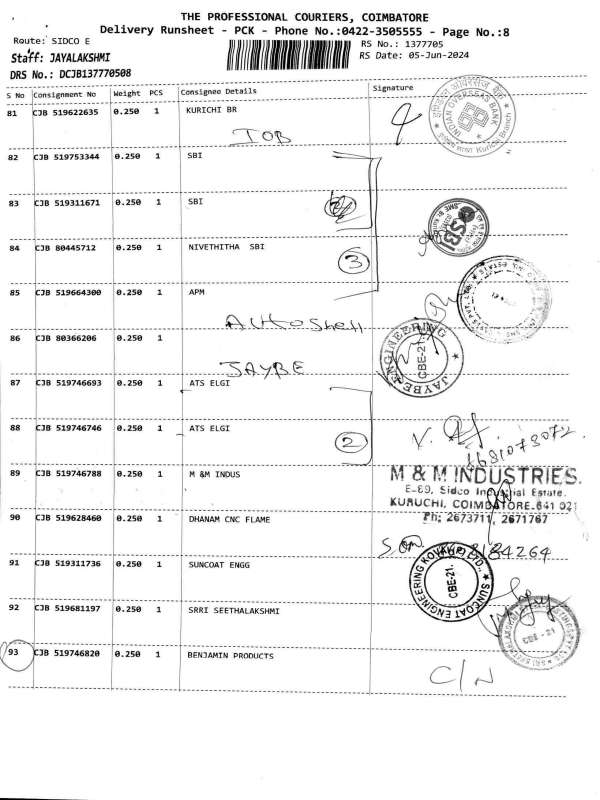 THE PROFESSIONAL COURIERS, COIMBATORE
Delivery Runsheet - PCK - Phone No.:0422-3505555 - Page No.:8
Route: SIDCO E
RS No.: 1377705
Staff: JAYALAKSHMI
RS Date: 05-Jun-2024
DRS No.: DCJB137770508
S No Consignment No Weight PCS Consignee Details Signature
81 CJB 519622635 0.250 1 KURICHI BR
IOB
INDIAN OVERSEAS BANK
Kurichi Branch
82 CJB 519753344 0.250 1 SBI
83 CJB 519311671 0.250 1 SBI
SBI
84 CJB 80445712 0.250 1 NIVETHITHA SBI
3
85 CJB 519664300 0.250 1 APM
Auto Shell
86 CJB 80366206 0.250 1
JAYBE
JAYBE ENGINEERING
CBE-21.
87 CJB 519746693 0.250 1 ATS ELGI
88 CJB 519746746 0.250 1 ATS ELGI
2
89 CJB 519746788 0.250 1 M &M INDUS
M & M INDUSTRIES.
E-69, Sidco Industrial Estate.
KURUCHI, COIMBATORE-641 021
Ph; 2673711, 2671767
90 CJB 519628460 0.250 1 DHANAM CNC FLAME
91 CJB 519311736 0.250 1 SUNCOAT ENGG
SUNCOAT ENGINEERING
CBE-21.
92 CJB 519681197 0.250 1 SRRI SEETHALAKSHMI
CBE - 21
93 CJB 519746820 0.250 1 BENJAMIN PRODUCTS
C/N